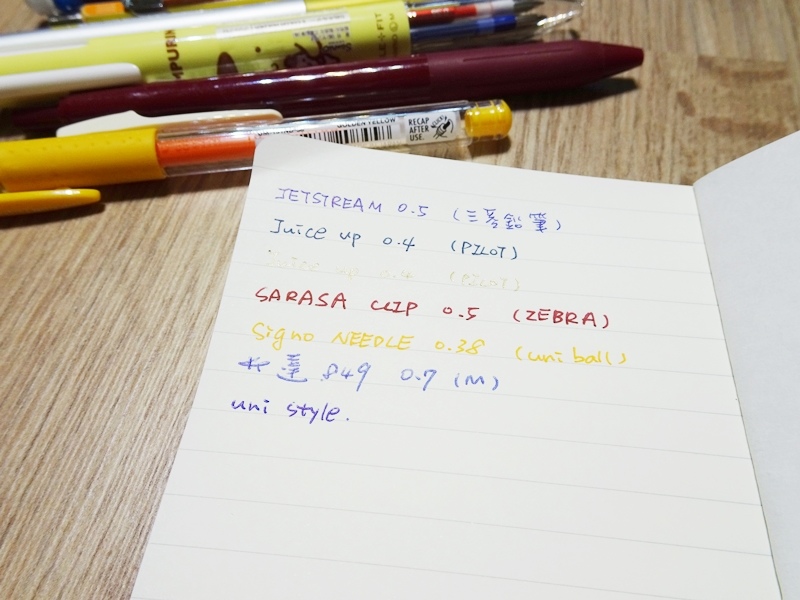 MPURIN
FLEX FIT
GOLDEN YELLOW
RECAP
AFTER
USE.
JETSTREAM 0.5 (三菱鉛筆)
Juice up 0.4 (PILOT)
Juice up 0.4 (PILOT)
SARASA CLIP 0.5 (ZEBRA)
Signo NEEDLE 0.38 (uni ball)
卡達 849 0.7 (M)
uni style.